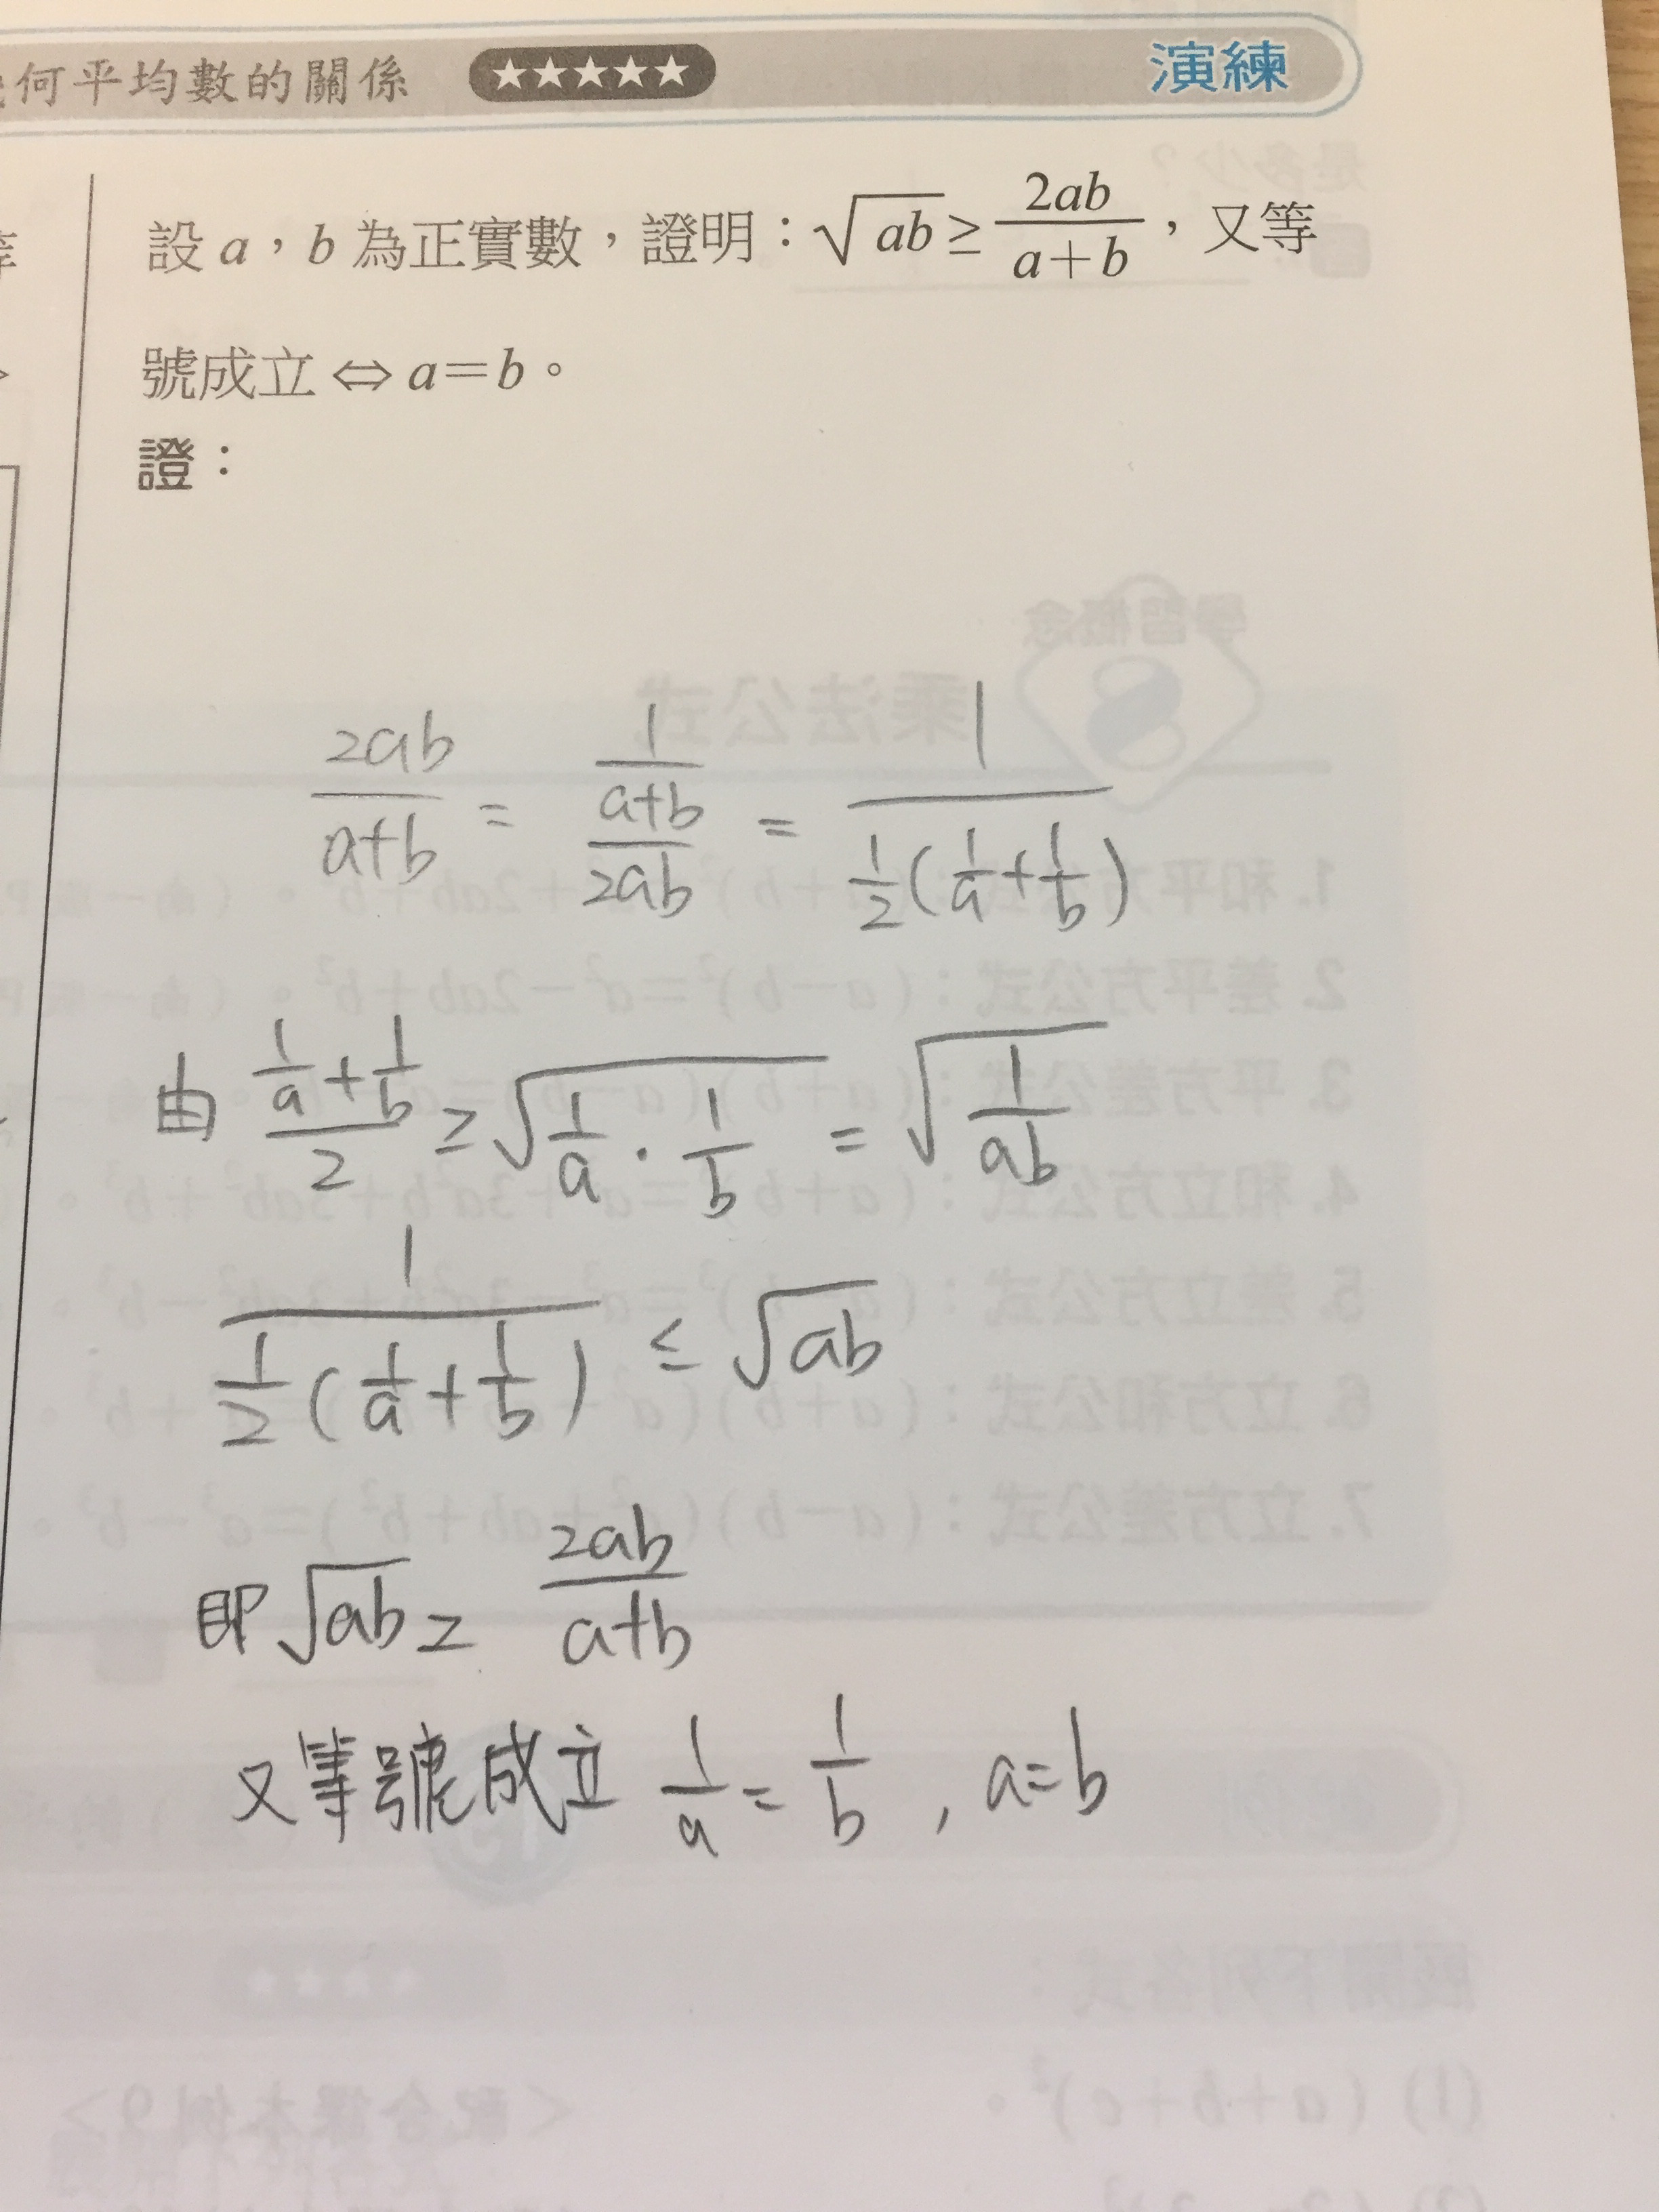 何平均數的關係 ★★★★★ 演練
設 a，b 為正實數，證明：√ab ≥ 2ab/(a+b)，又等
號成立 ⇔ a＝b。
證：
2ab/(a+b) = 1/((a+b)/2ab) = 1/(½(1/a+1/b))
由 (1/a+1/b)/2 ≥ √(1/a·1/b) = √(1/ab)
1/(½(1/a+1/b)) ≤ √ab
即 √ab ≥ 2ab/(a+b)
又等號成立 1/a = 1/b , a=b